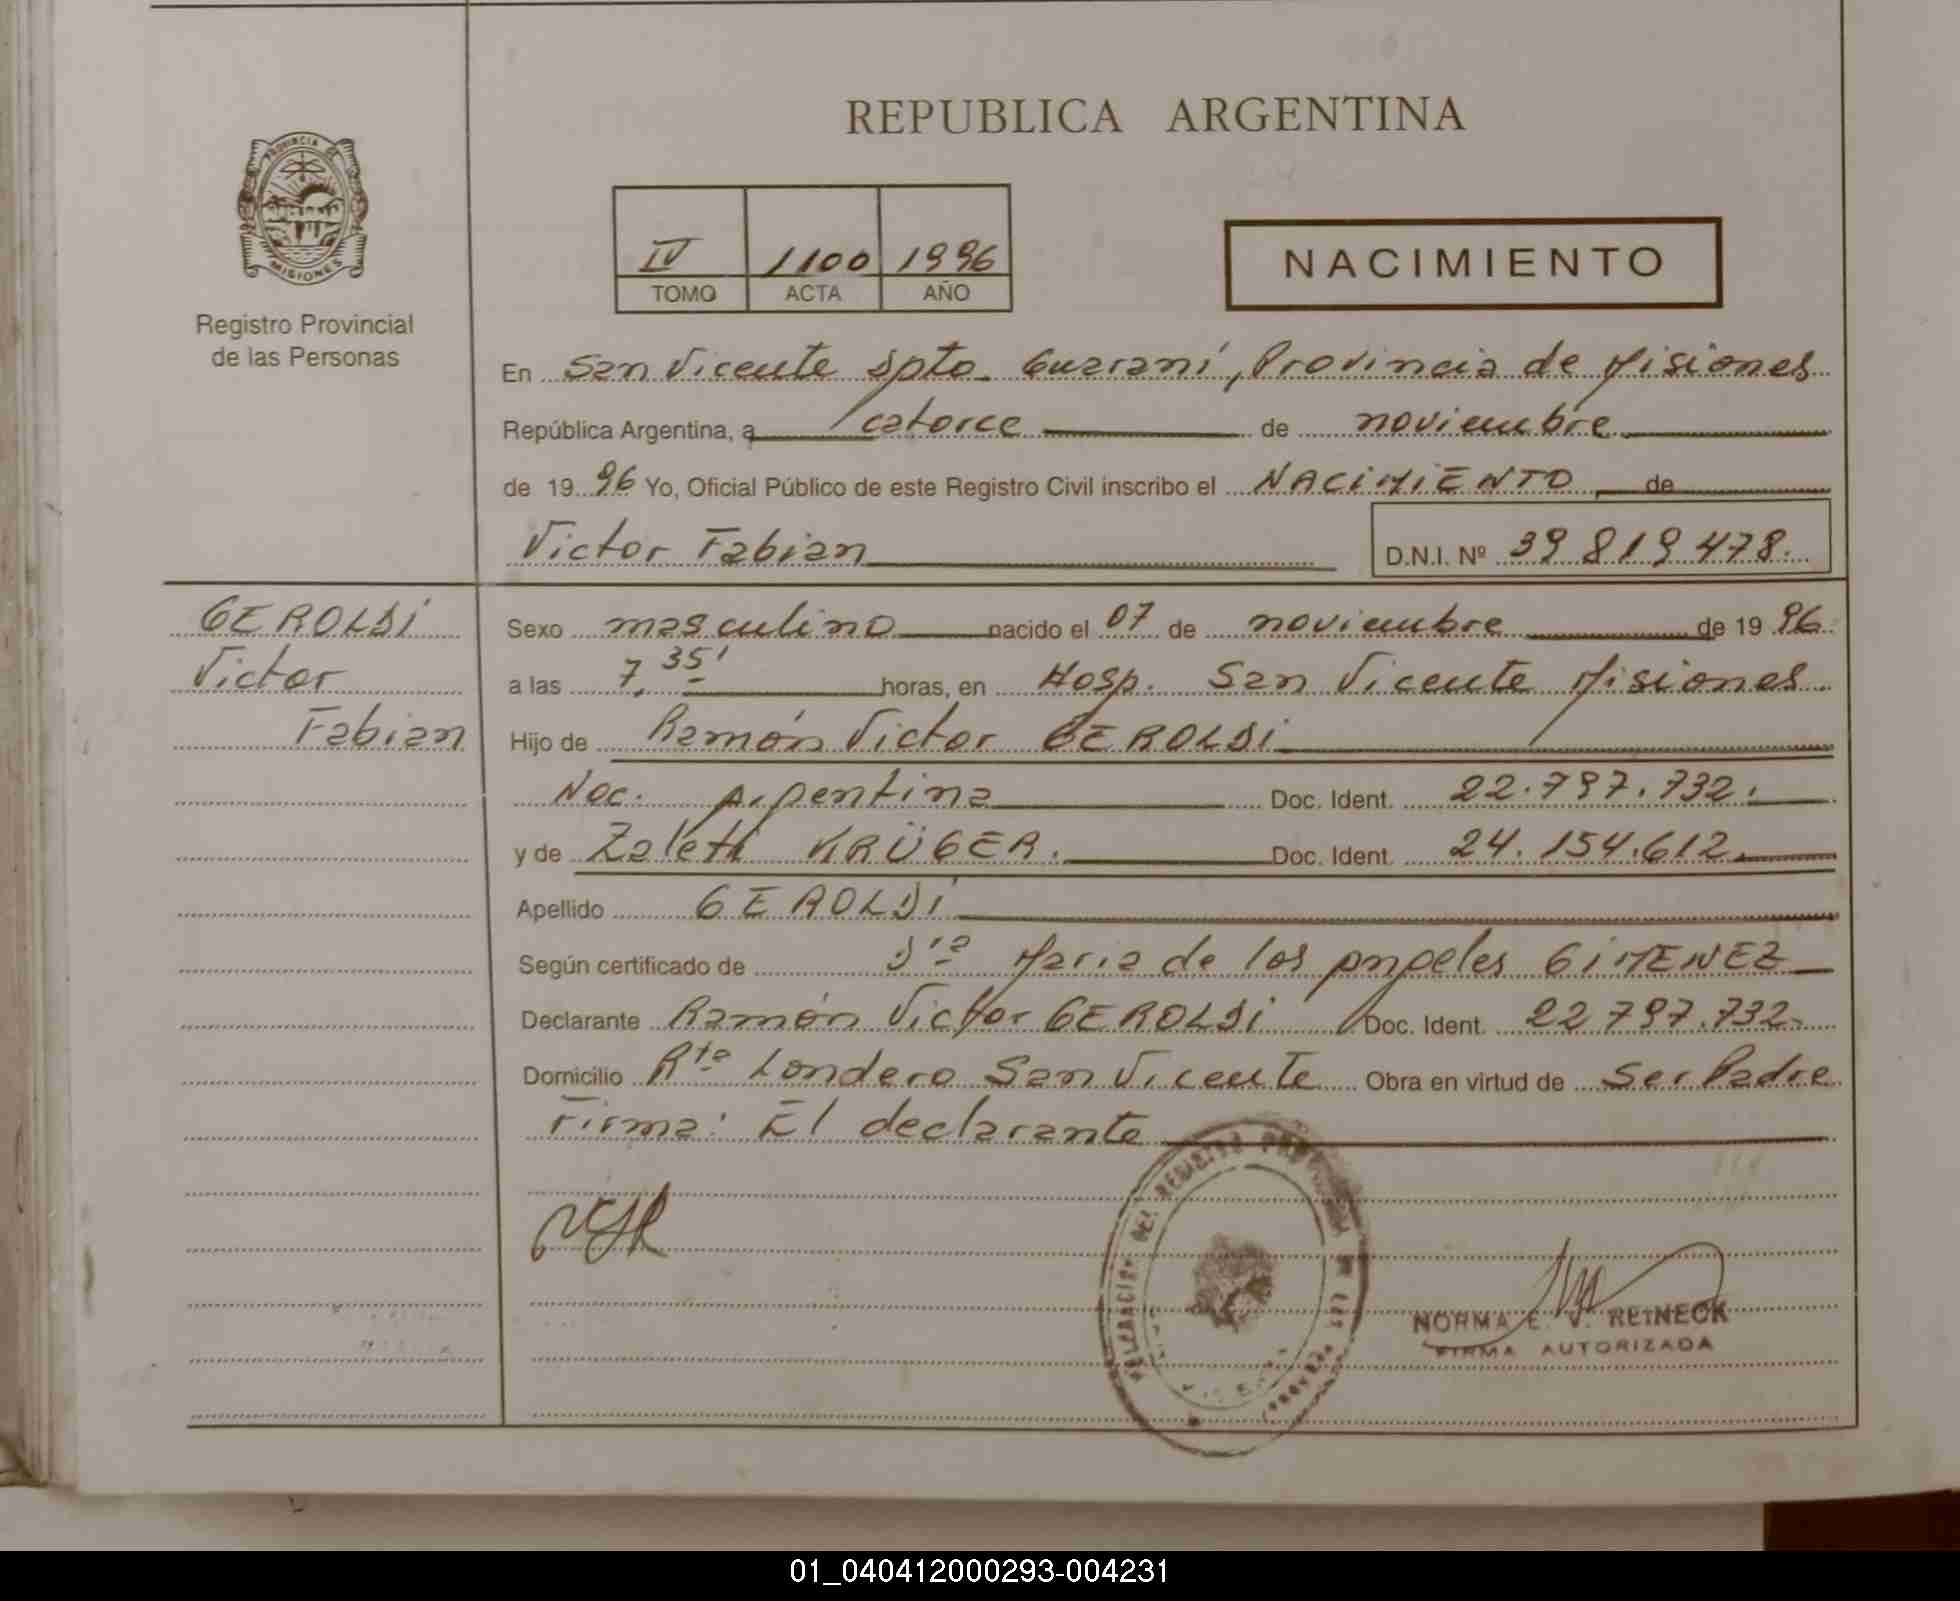 REPUBLICA ARGENTINA
PROVINCIA DE
MISIONES
Registro Provincial
de las Personas
IV 1100 1996
TOMO ACTA AÑO
NACIMIENTO
En San Vicente Dpto. Guaraní, Provincia de Misiones
República Argentina, a catorce de noviembre
de 1996 Yo, Oficial Público de este Registro Civil inscribo el NACIMIENTO de
Victor Fabian D.N.I. Nº 39 819 478.
GEROLDI
Victor
Fabian
Sexo masculino nacido el 07 de noviembre de 1996.
a las 7,35' horas, en Hosp. San Vicente Misiones
Hijo de Ramón Victor GEROLDI
Nac. Argentina Doc. Ident. 22.797.732.
y de Zaleth KRÜGER. Doc. Ident. 24.154.612.
Apellido GEROLDI
Según certificado de Dra Maria de los Angeles GIMENEZ
Declarante Ramón Victor GEROLDI Doc. Ident. 22 797.732.
Domicilio Rta Londero San Vicente Obra en virtud de Ser Padre
Firma: El declarante
NORMA E. V. REINECK
FIRMA AUTORIZADA
01_040412000293-004231